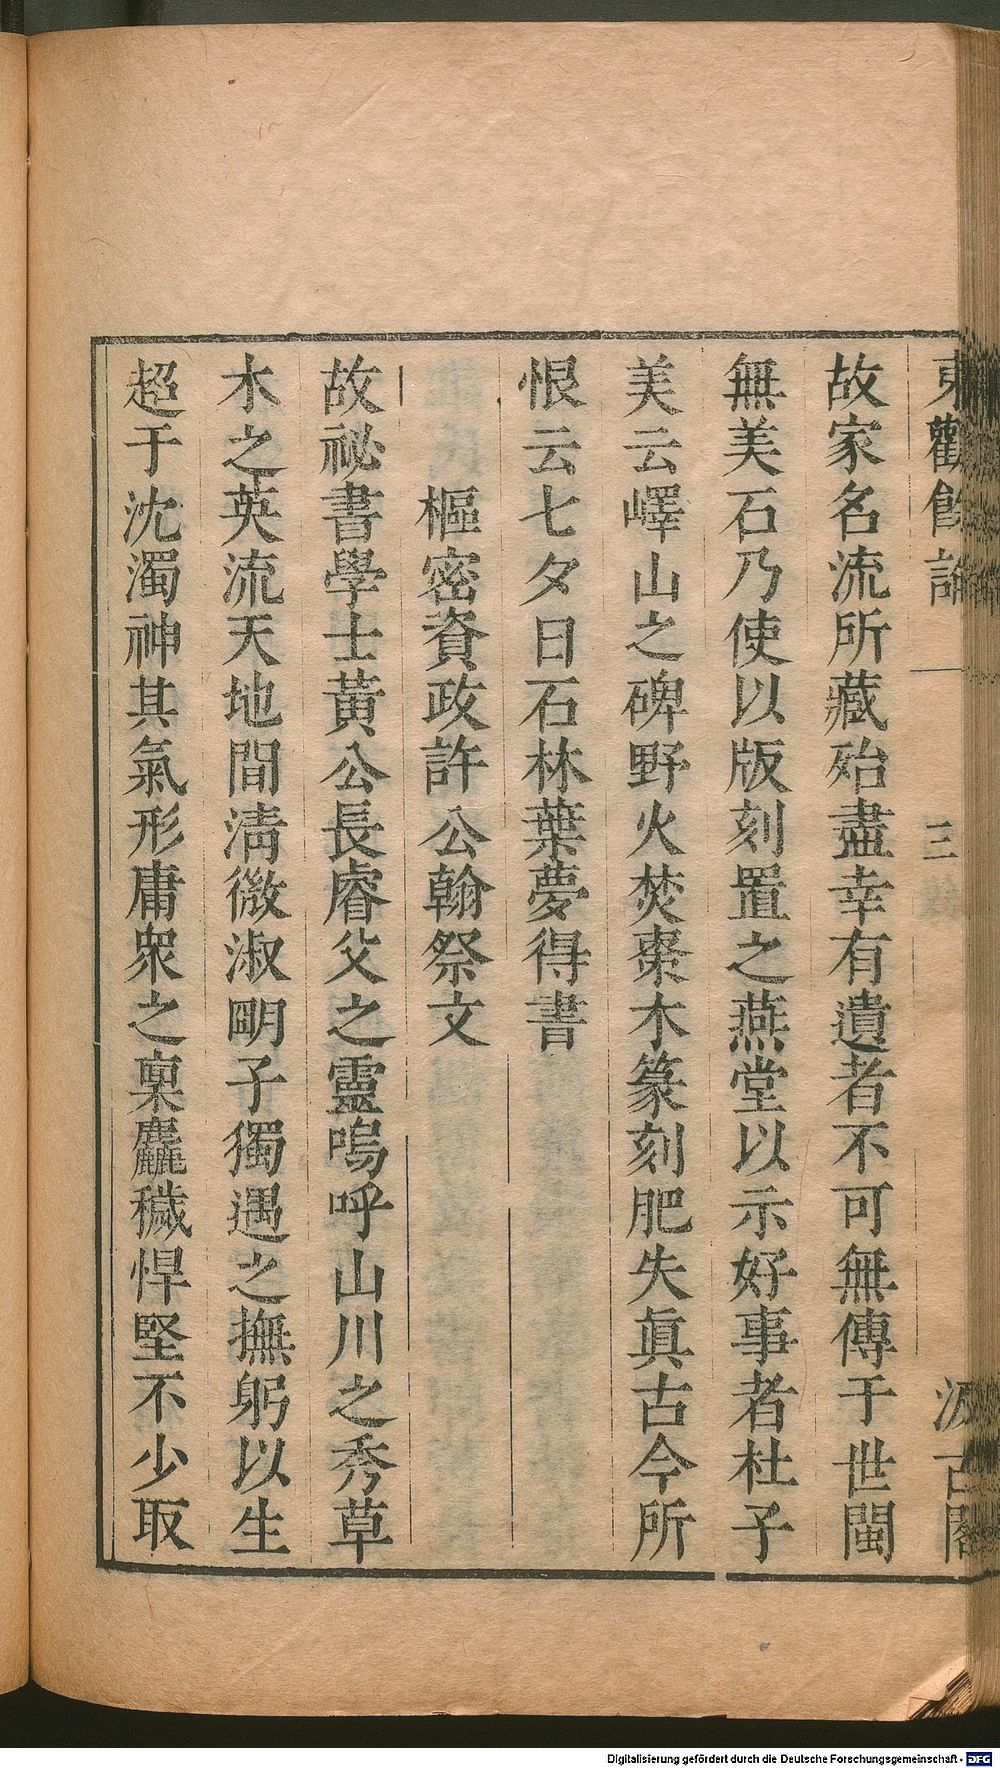 東觀餘論
三
汲古閣
故家名流所藏殆盡幸有遺者不可無傳于世閩
無美石乃使以版刻置之燕堂以示好事者杜子
美云嶧山之碑野火焚棗木篆刻肥失眞古今所
恨云七夕日石林葉夢得書
樞密資政許公翰祭文
故祕書學士黃公長睿父之靈嗚呼山川之秀草
木之英流天地間淸微淑明子獨遇之撫躬以生
超于沈濁神其氣形庸衆之稟麤穢悍堅不少取
Digitalisierung gefördert durch die Deutsche Forschungsgemeinschaft - DFG